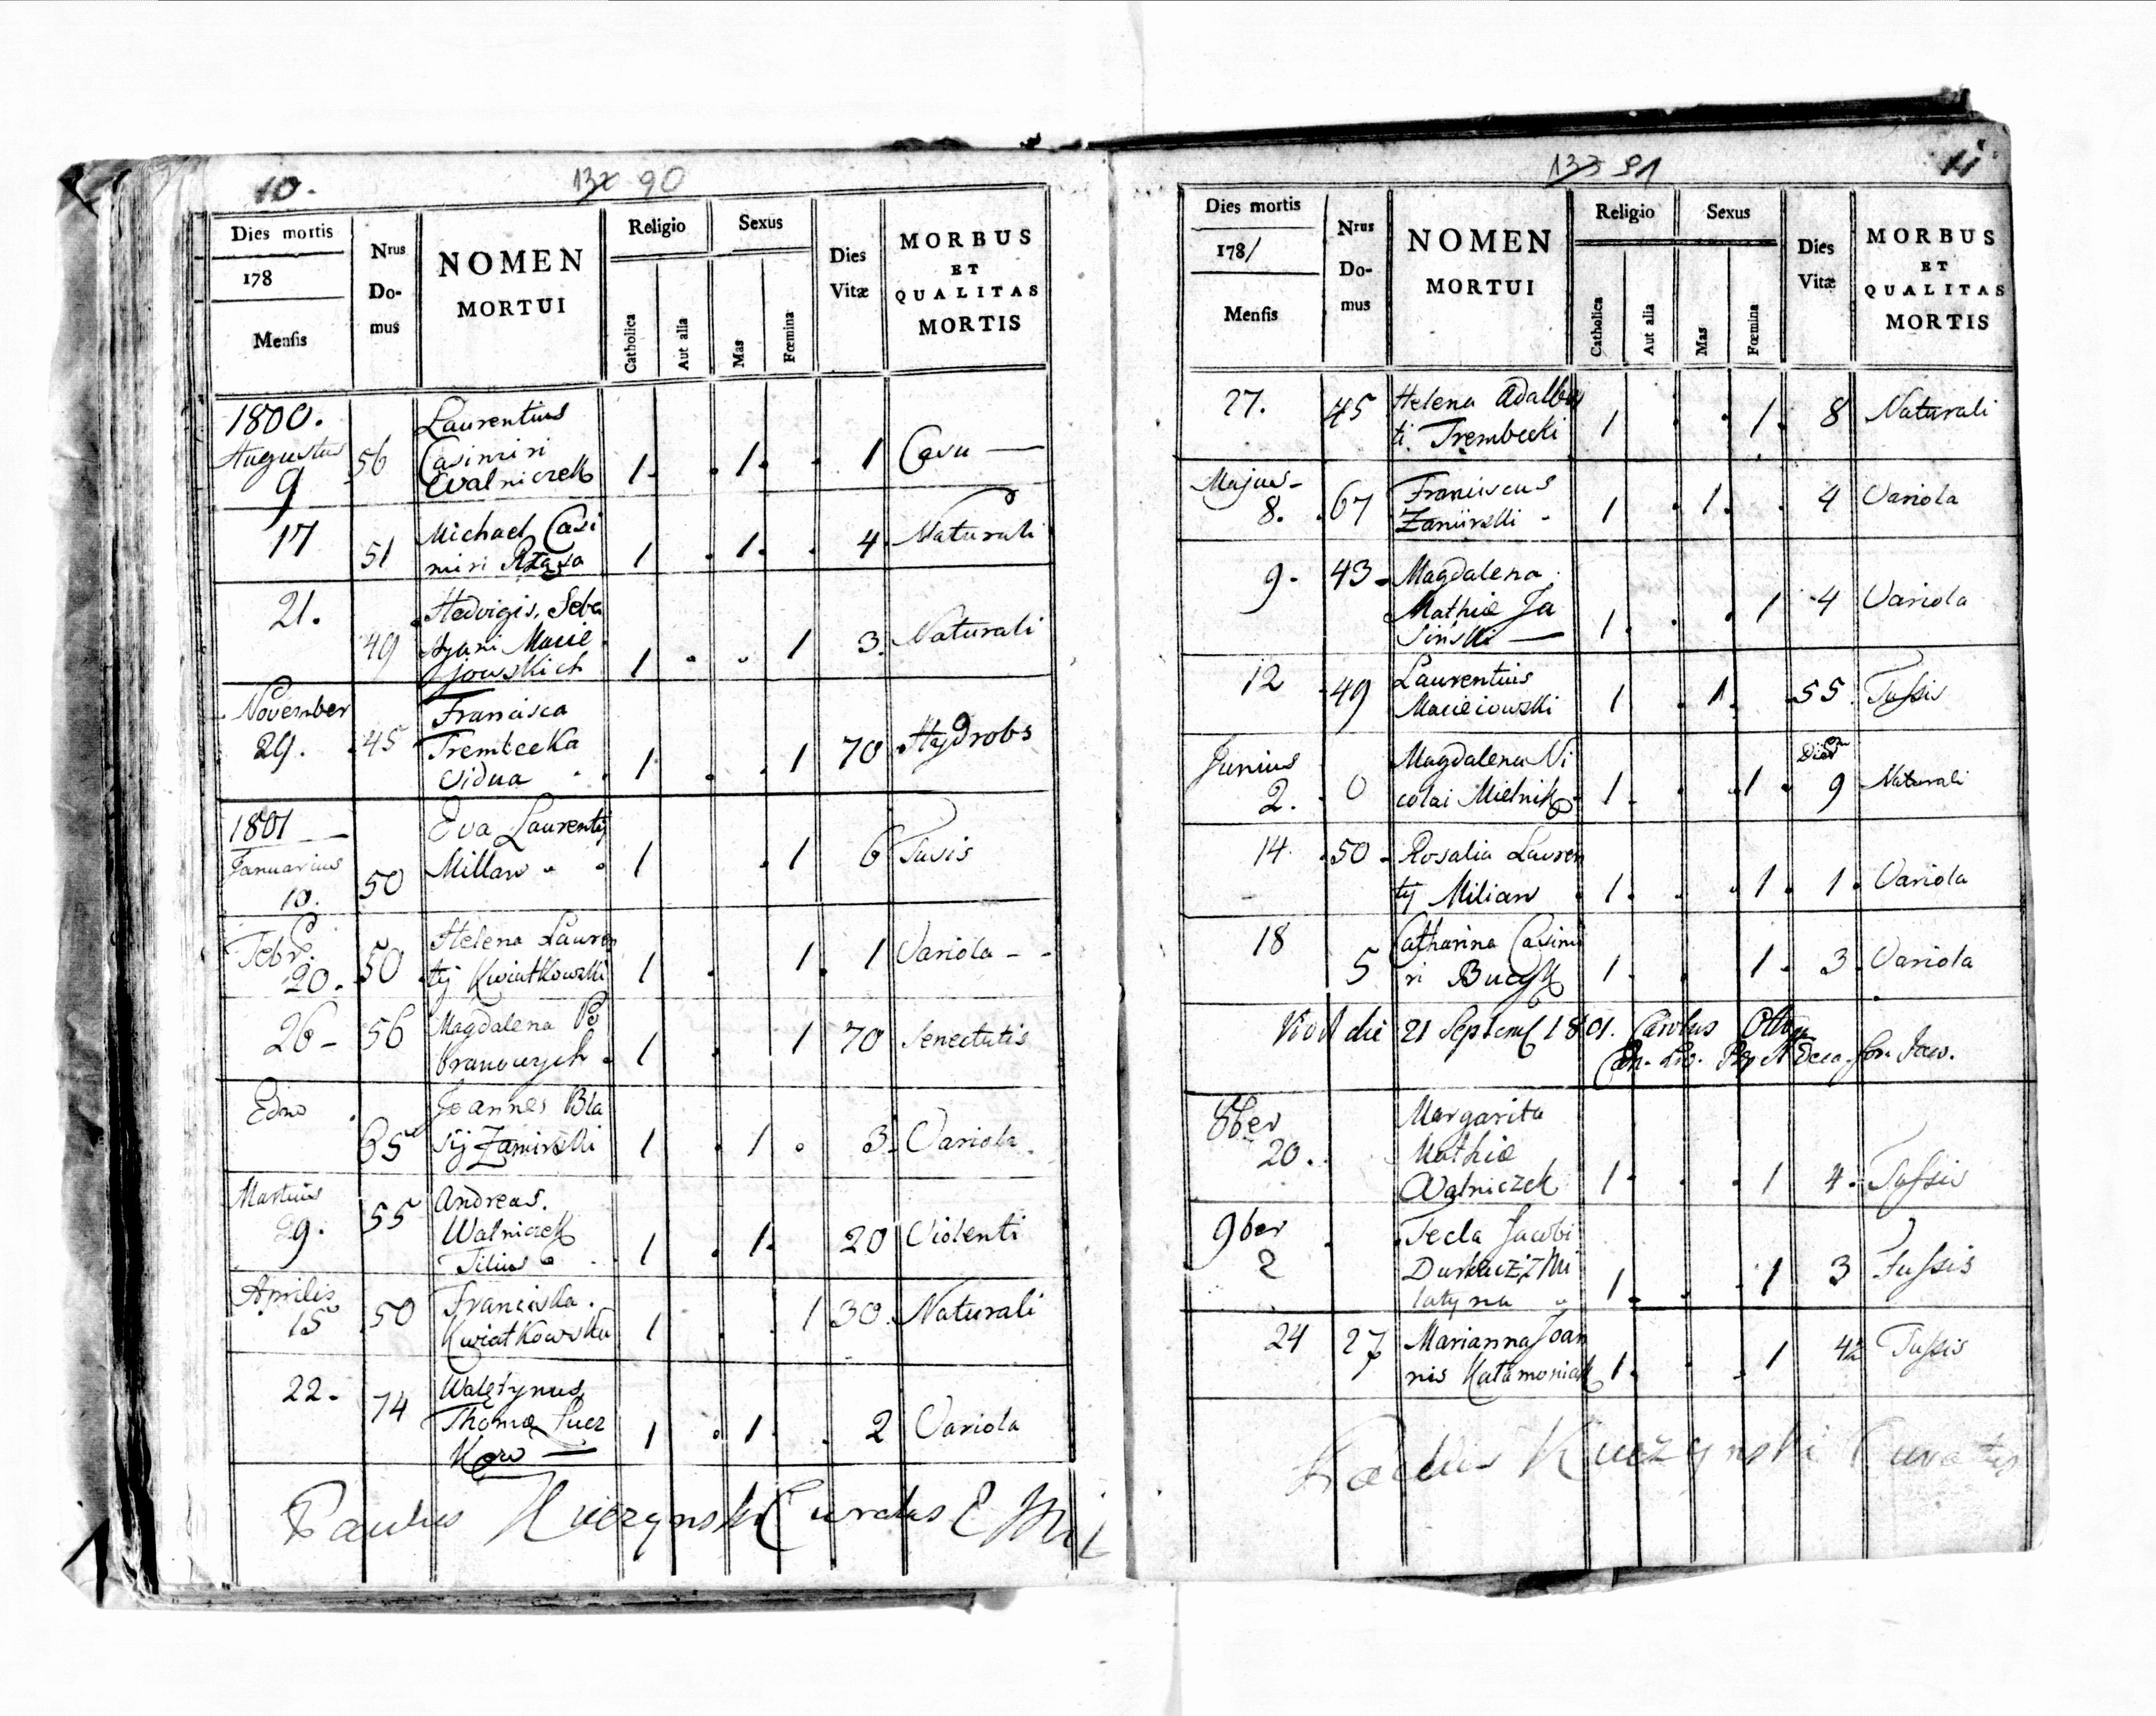 10.
90
Dies mortis
178
Mensis
Nrus
Do-
mus
NOMEN
MORTUI
Religio
Catholica
Aut alia
Sexus
Mas
Fœmina
Dies
Vitæ
MORBUS
ET
QUALITAS
MORTIS
1800.
Augustus
9 56
Laurentius
Casimiri
Walniczek 1. . 1. . 1 Casu —
17 51 Michael Casi
miri 1 . 1. . 4. Naturali
21. 49 Hedvigis, Seba
styani Macie
jowskich 1 . . 1 3. Naturali
November
29. 45 Francisca
Trembecka
Vidua 1 . . 1 70 Hydrobs
1801 —
Januarius
10. 50 Eva Laurentij
Millan 1 . 1 6 Tusis
Febr.
20. 50 Helena Lauren
tij Kwiatkowski 1 . 1. 1 Variola - -
26 - 56 Magdalena
1 . 1 70 Senectutis
Edno . 65 Joannes Bla
sij Zamirski 1 . 1 . 3. Variola.
Martius
29. 55 Andreas.
Walniczek
Filius 1 . 1. 20 Violenti
Aprilis
15 50 Franciska.
Kwiatkowska 1 . . 1 30. Naturali
22. 74 Walętynus
Thomæ
1 . 1 . 2 Variola
Paulus Kuczynski Curatus
91
11
Dies mortis
178/
Mensis
Nrus
Do-
mus
NOMEN
MORTUI
Religio
Catholica
Aut alia
Sexus
Mas
Fœmina
Dies
Vitæ
MORBUS
ET
QUALITAS
MORTIS
27. 45 Helena Adalber
ti Trembecki 1 . 1. 8 Naturali
Majus -
8. 67 Franciscus
Zamirski - 1 . 1. . 4 Variola
9. 43 - Magdalena
Mathiæ Ja
sinski — 1. . 1 4 Variola
12 49 Laurentius
Macieiowski 1 . 1. 55. Tussis
Junius
2. 0 Magdalena Ni
colai Mielnik 1. . 1. 9 Naturali
14. 50 - Rosalia Lauren
tij Milian 1. . 1. 1. Variola
18 5 Catharina Casimi
ri 1. . 1. 3. Variola
die 21 Septemb 1801. Carolus
8ber
20. Margarita
Mathiæ
Walniczek 1. . 1 4. Tussis
9ber
2 Tecla Jacobi
1. . 1 3 Tussis
24 27 Marianna Joan
nis 1. . 1 Tussis
Paulus Kuczynski Curatus